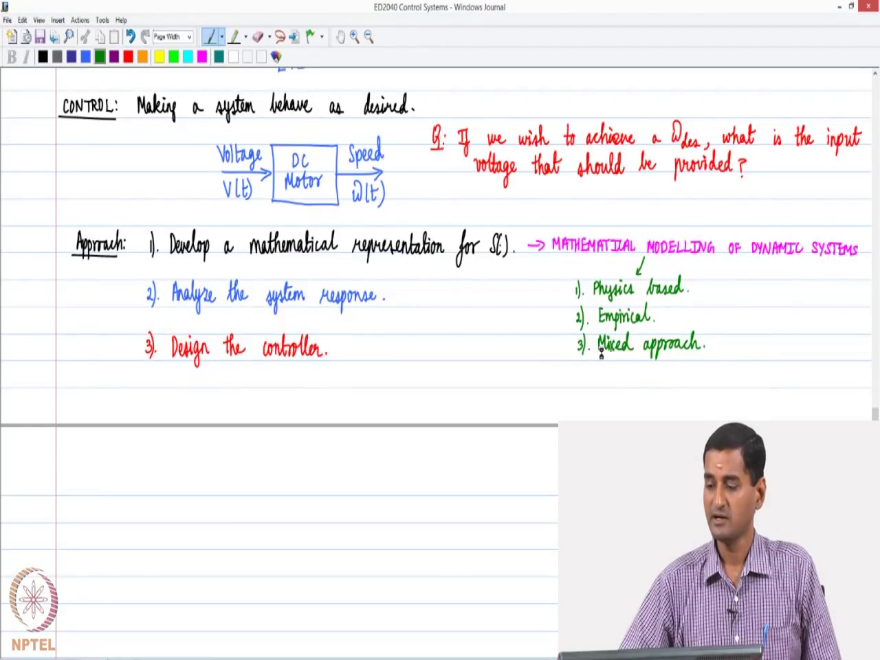 ED2040 Control Systems - Windows Journal
File Edit View Insert Actions Tools Help
Page Width
B I
CONTROL: Making a system behave as desired.
Voltage
V(t)
DC
Motor
Speed
ω(t)
Q: If we wish to achieve a ω des, what is the input
voltage that should be provided?
Approach: 1). Develop a mathematical representation for S(.). → MATHEMATICAL MODELLING OF DYNAMIC SYSTEMS
2). Analyze the system response.
3). Design the controller.
1). Physics based.
2). Empirical.
3). Mixed approach.
NPTEL